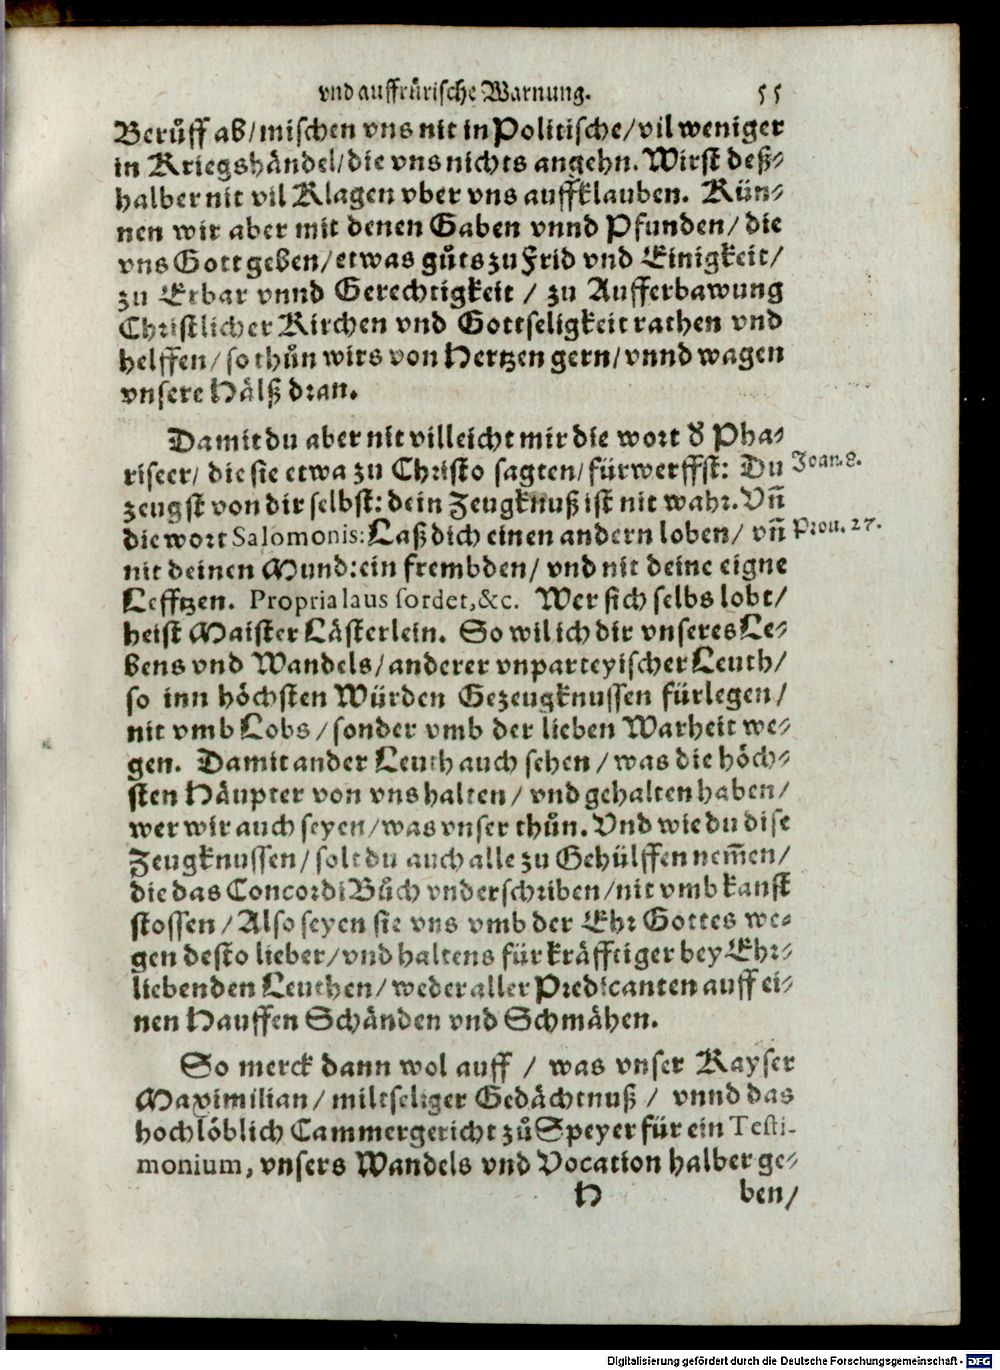 vnd auffrürische Warnung. 55
Berůff ab/ mischen vns nit in Politische/ vil weniger
in Kriegshändel/ die vns nichts angehn. Wirst deß⸗
halber nit vil Klagen vber vns auffklauben. Kün⸗
nen wir aber mit denen Gaben vnnd Pfunden/ die
vns Gott geben/ etwas gůts zu Frid vnd Einigkeit/
zu Erbar vnnd Gerechtigkeit / zu Aufferbawung
Christlicher Kirchen vnd Gottseligkeit rathen vnd
helffen/ so thůn wirs von Hertzen gern/ vnnd wagen
vnsere Hälß dran.
Damit du aber nit villeicht mir die wort ð Pha⸗
riseer/ die sie etwa zu Christo sagten/ fürwerffst: Du Joan. 8.
zeugst von dir selbst: dein Zeugknuß ist nit wahr. Vñ
die wort Salomonis: Laß dich einen andern loben/ vñ Prou. 27.
nit deinen Mund: ein frembden/ vnd nit deine eigne
Lefftzen. Propria laus sordet, &c. Wer sich selbs lobt/
heist Maister Lästerlein. So wil ich dir vnseres Le⸗
bens vnd Wandels/ anderer vnparteyischer Leuth/
so inn höchsten Würden Gezeugknussen fürlegen/
nit vmb Lobs/ sonder vmb der lieben Warheit we⸗
gen. Damit ander Leuth auch sehen/ was die höch⸗
sten Häupter von vns halten/ vnd gehalten haben/
wer wir auch seyen/ was vnser thůn. Vnd wie du dise
Zeugknussen/ solt du auch alle zu Gehülffen nem̃en/
die das Concordi Bůch vnderschriben/ nit vmb kanst
stossen/ Also seyen sie vns vmb der Ehr Gottes we⸗
gen desto lieber/ vnd haltens für kräfftiger bey Ehr⸗
liebenden Leuthen/ weder aller Predicanten auff ei⸗
nen Hauffen Schänden vnd Schmähen.
So merck dann wol auff / was vnser Kayser
Maximilian/ miltseliger Gedächtnuß / vnnd das
hochlöblich Cammergericht zů Speyer für ein Testi-
monium, vnsers Wandels vnd Vocation halber ge⸗
H ben/
Digitalisierung gefördert durch die Deutsche Forschungsgemeinschaft - DFG